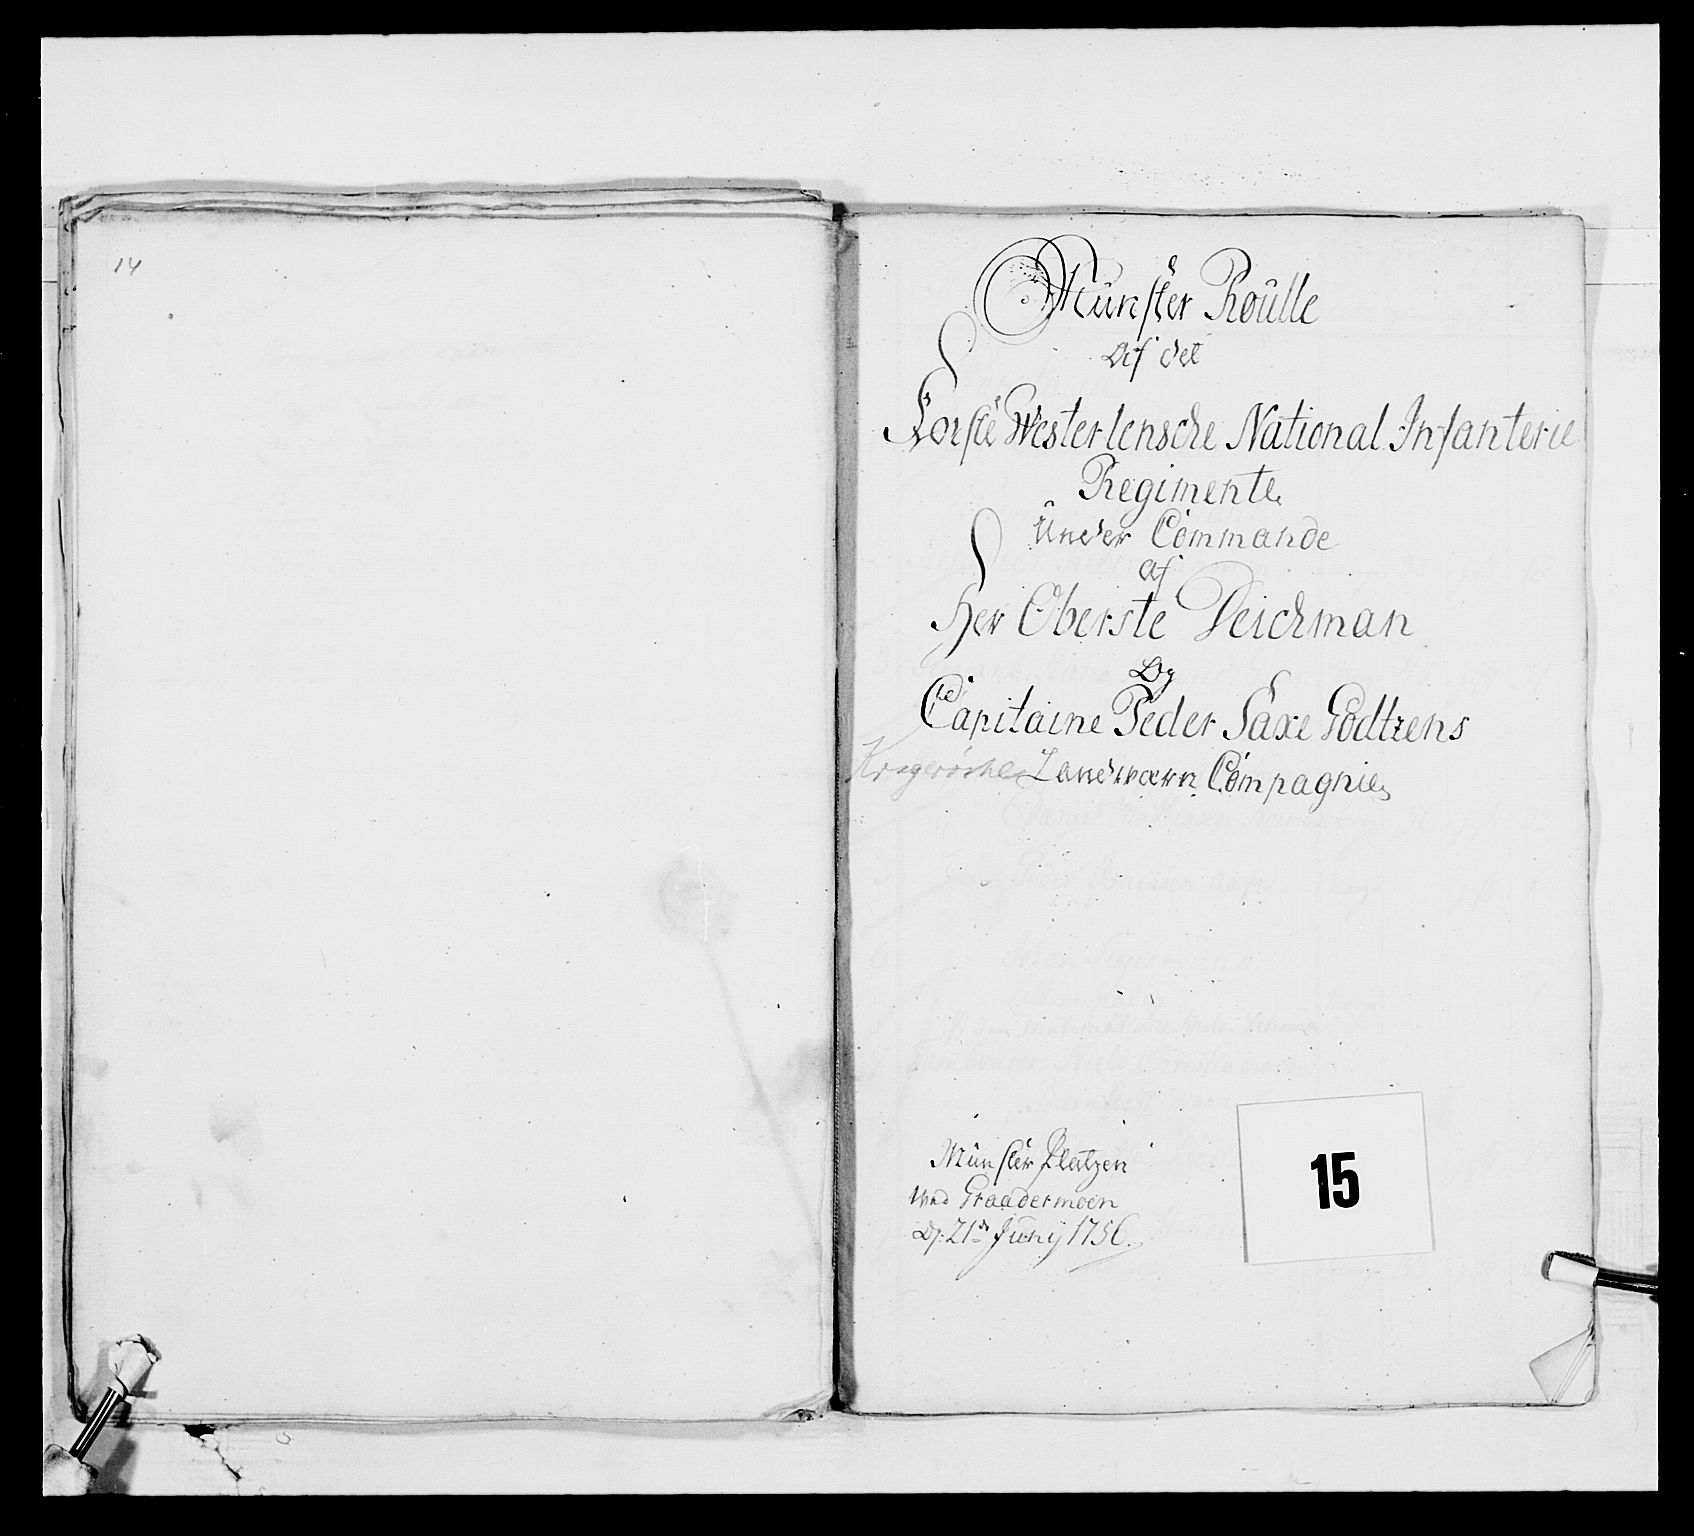 14
Münster Roülle
Af det
Förste Westerlensche National Infanterie
Regimente
Ünder Commando
af
Her Oberste Deichman
Og
Capitaine Peder Saxe Godtzens
Kragerösche Landwærn Compagnie
Münster Platzen
ved Graadermoen
D: 21de Junij 1756.
15